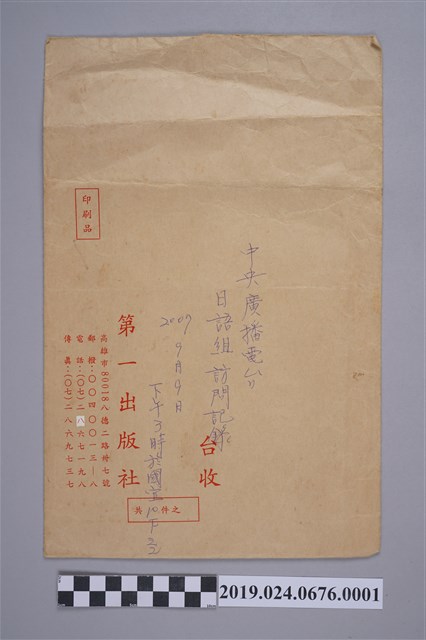 中央廣播電台
日語組訪問記錄
2009
9月9日
下午3時於國賓
台收
印刷品
第一出版社
高雄市80018八德二路卅七號
郵撥：〇〇四〇〇一三—八
電話：(〇七)二八六七一九八
傳真：(〇七)二八六九七三七
共 件 之
2019.024.0676.0001